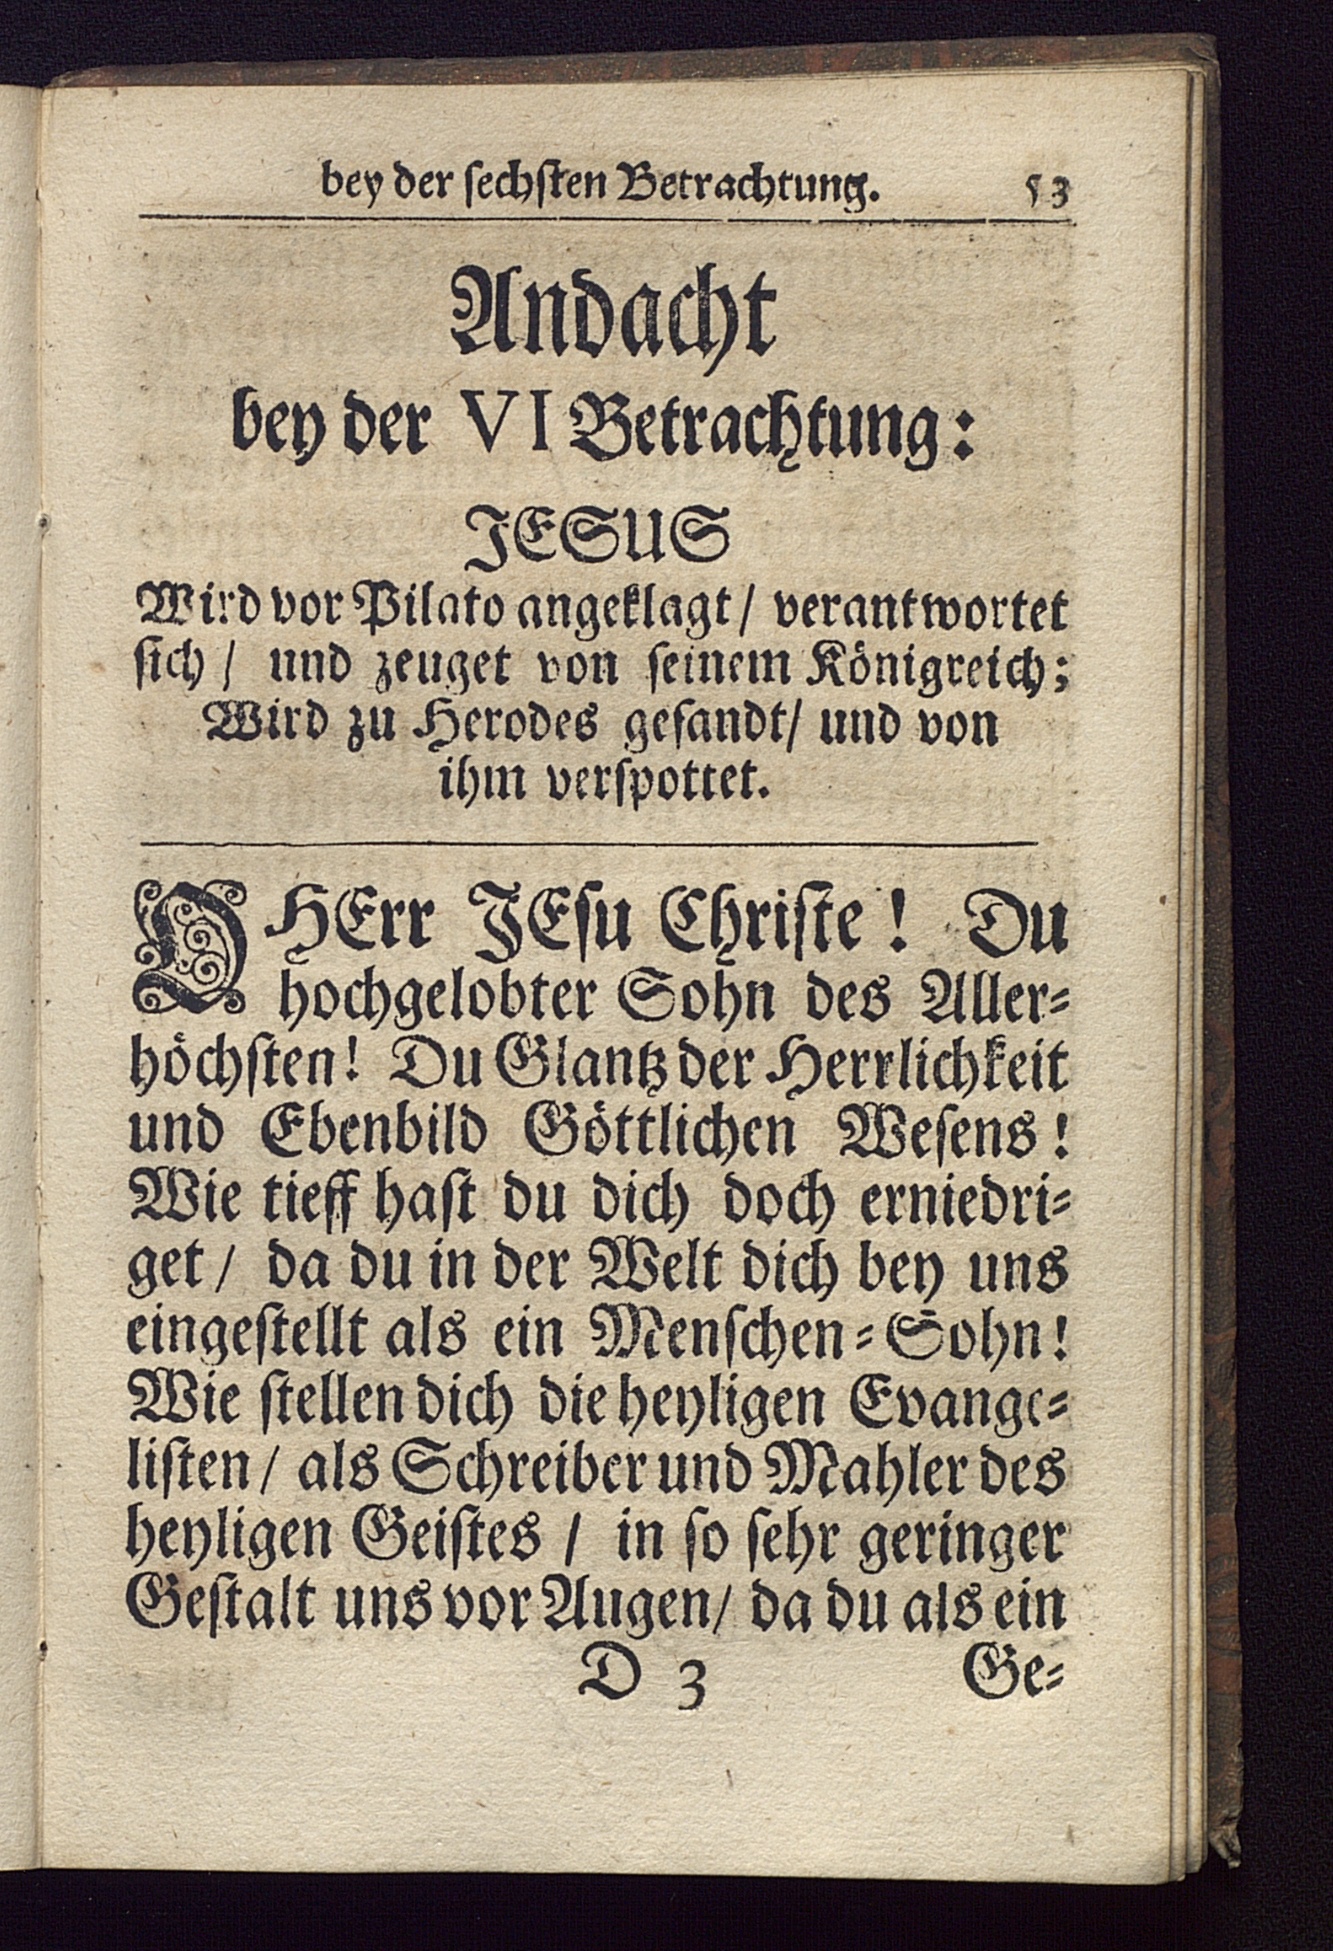 bey der ſechſten Betrachtung. 53
Andacht
bey der VI Betrachtung:
JESUS
Wird vor Pilato angeklagt/ verantwortet
ſich/ und zeuget von ſeinem Königreich;
Wird zu Herodes geſandt/ und von
ihm verſpottet.
O HErr JEſu Chriſte! Du
hochgelobter Sohn des Aller⸗
höchſten! Du Glantz der Herrlichkeit
und Ebenbild Göttlichen Weſens!
Wie tieff haſt du dich doch erniedri⸗
get/ da du in der Welt dich bey uns
eingeſtellt als ein Menſchen⸗Sohn!
Wie ſtellen dich die heyligen Evange⸗
liſten/ als Schreiber und Mahler des
heyligen Geiſtes/ in ſo ſehr geringer
Geſtalt uns vor Augen/ da du als ein
D 3 Ge⸗